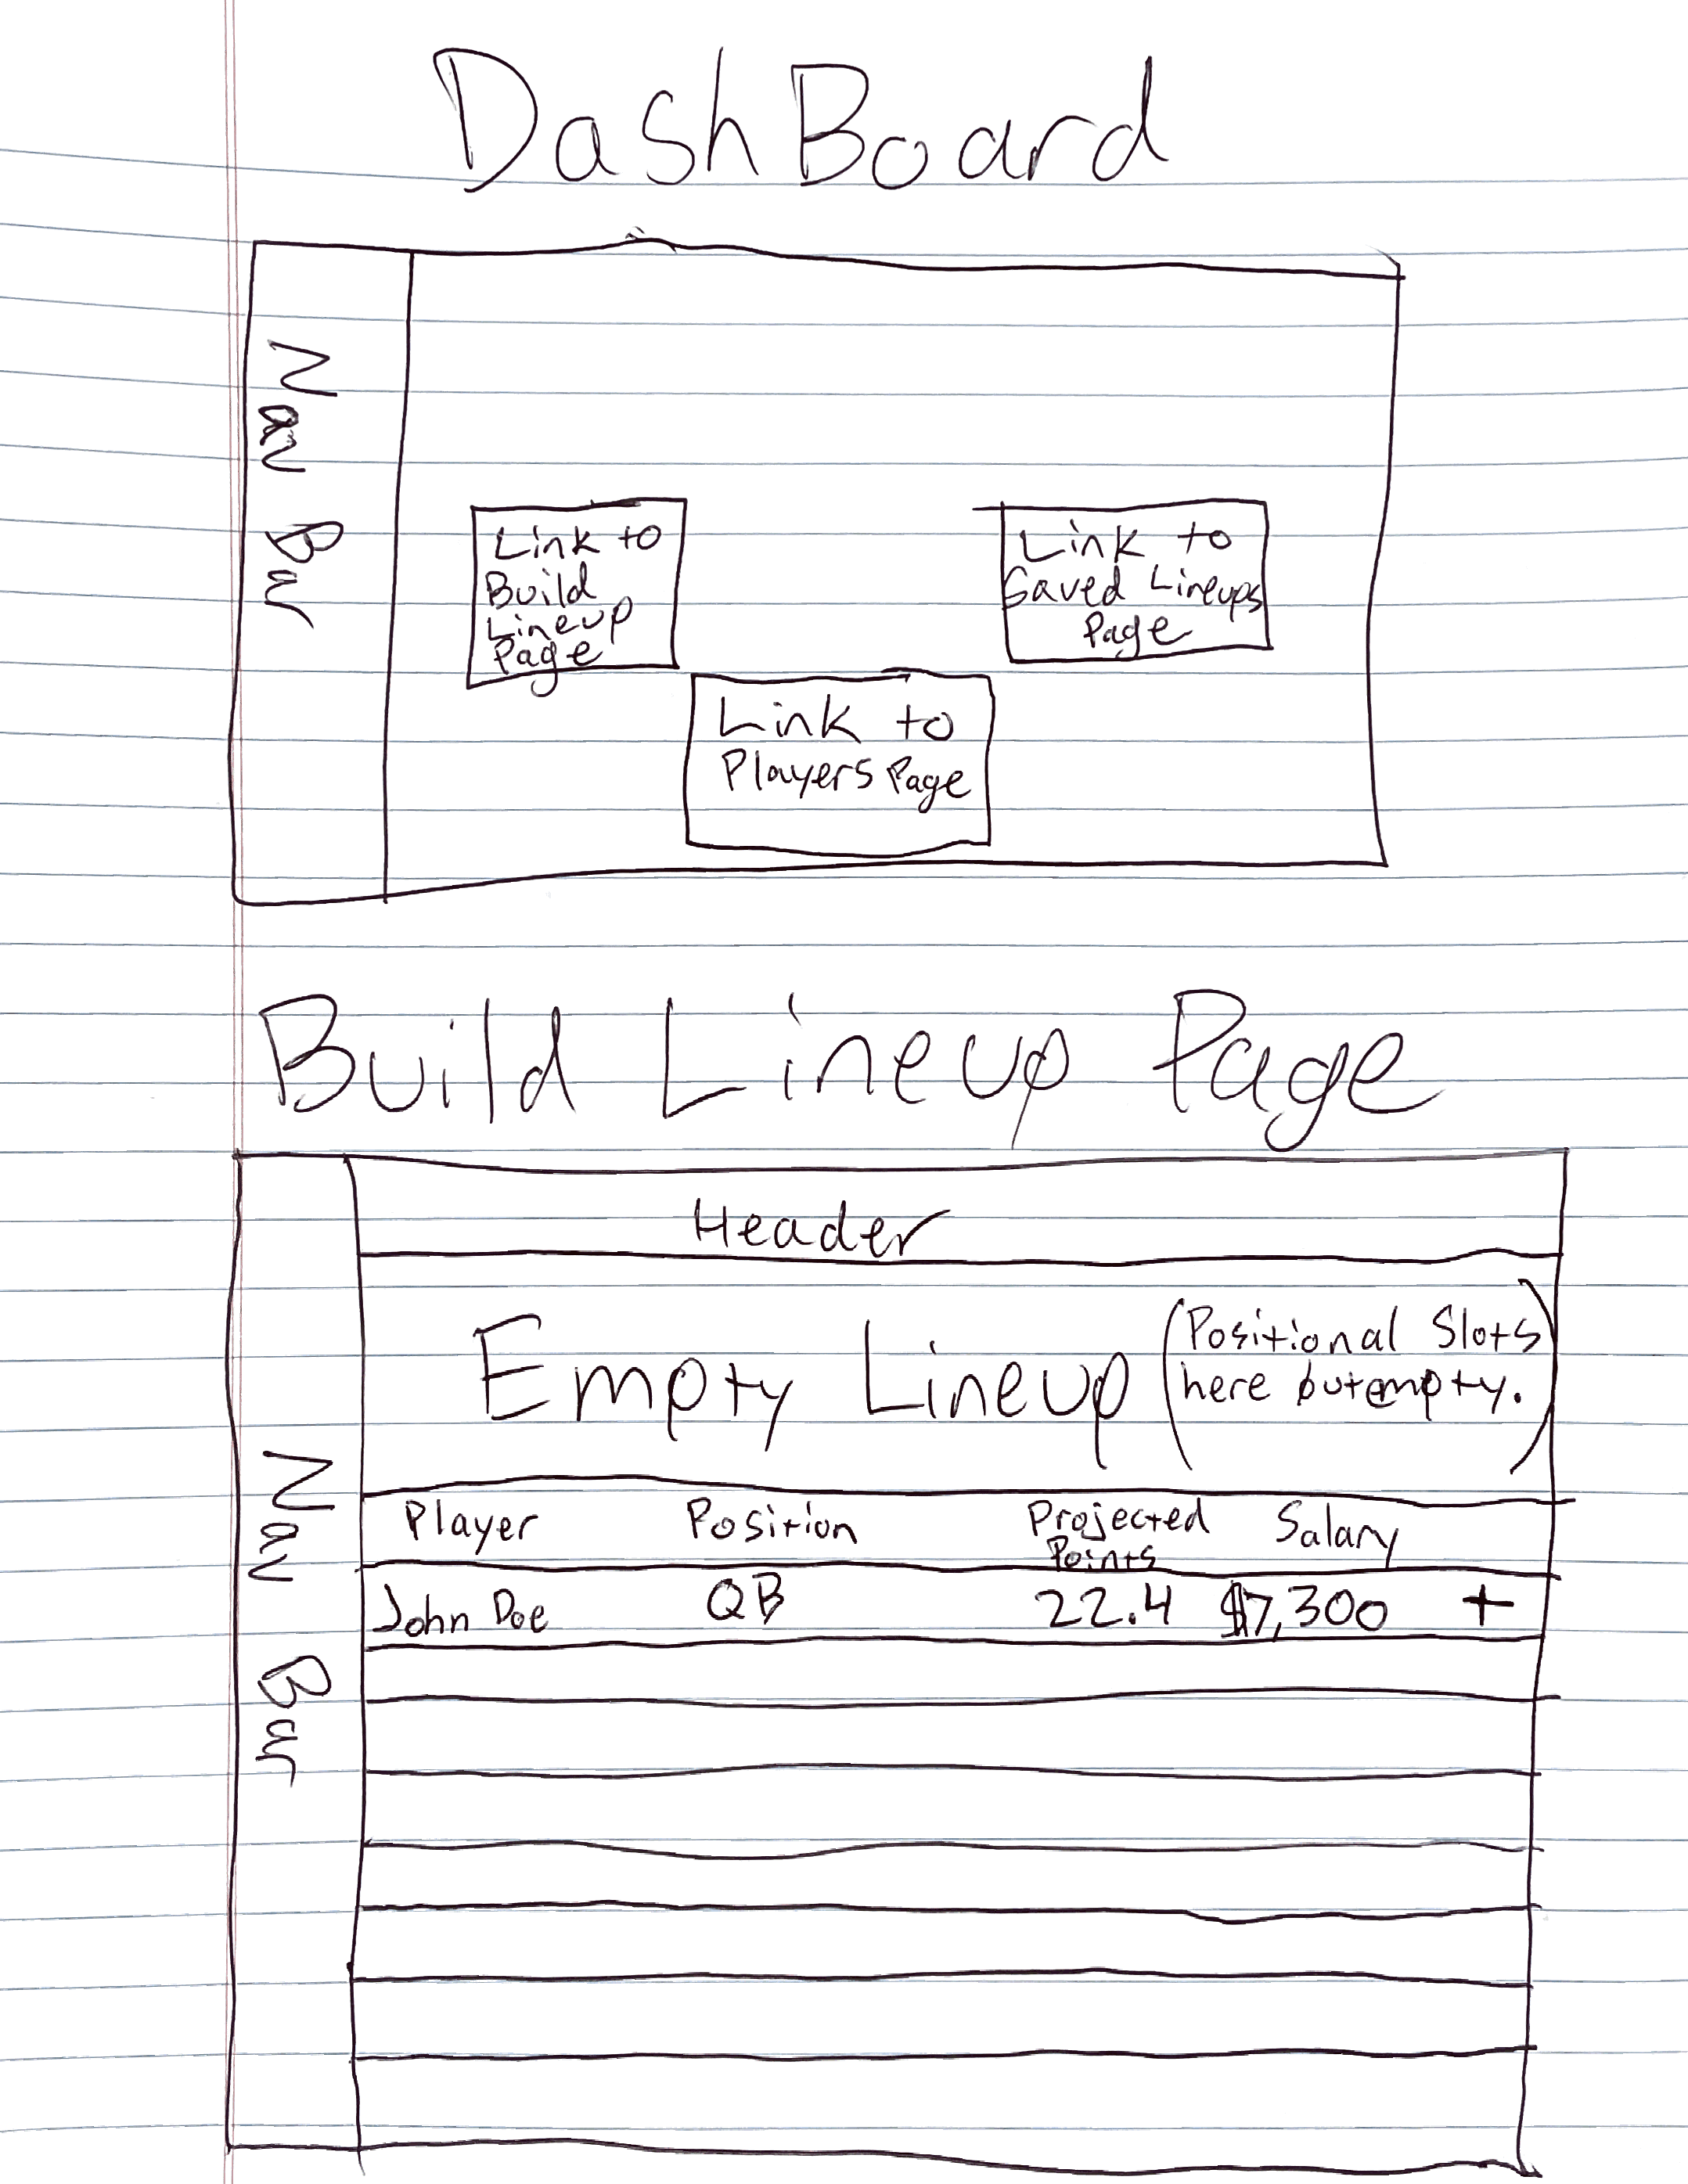 DashBoard
Nav Bar
Link to
Build
Lineup
Page
Link to
Saved Lineups
Page
Link to
Players Page
Build Lineup Page
Header
Empty Lineup (Positional Slots
here but empty.)
Nav Bar
Player Position Projected Points Salary
John Doe QB 22.4 $7,300 +